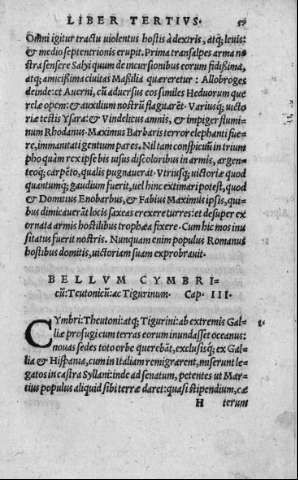 LIBER TERTIVS. 59
Omni igitur tractu violentus hostis à dextris, atq; leuis:
& medio septentrionis erupit. Prima transalpes arma no
stra sensere Salyi quum de incursionibus eorum fidissima,
atq; amicissima ciuitas Massilia quæreretur: Allobroges
deinde: et Auerni, cū aduersus eos similes Heduorum que
relæ opem: & auxilium nostrū flagitarēt. Variusq; victo
riæ testis Ysara: & Vindelicus amnis, & impiger flumi
num Rhodanus. Maximus Barbaris terror elephanti fue
re, immanitati gentium pares. Nil tam conspicuū in trium
pho quàm rex ipse bis uisus discoloribus in armis, argen
teoq; carpēto, qualis pugnauerat. Vtriusq; victoriæ quod
quantumq; gaudium fuerit, uel hinc extimari potest, quod
& Domitius Enobarbus, & Fabius Maximus ipsis, qui-
bus dimicauerāt locis saxeas erexere turres: et desuper ex
ornata armis hostilibus trophæa fixere. Cum hic mos inu
sitatus fuerit nostris. Nunquam enim populus Romanus
hostibus domitis, uictoriam suam exprobrauit.
BELLVM CYMBRI-
cū: Teutonicū: ac Tigurinum. Cap. III.
CYmbri: Theutoni: atq; Tigurini: ab extremis Gal-
liæ profugi cum terras eorum inundasset oceanus:
nouas sedes toto orbe querebāt, exclusisq; ex Gal
lia & Hispania, cum in Italiam remigrarent, miserunt le-
gatos in castra Syllani: inde ad senatum, petentes ut Mar-
tius populus aliquid sibi terræ daret: quasi stipendium, cæ
H terum